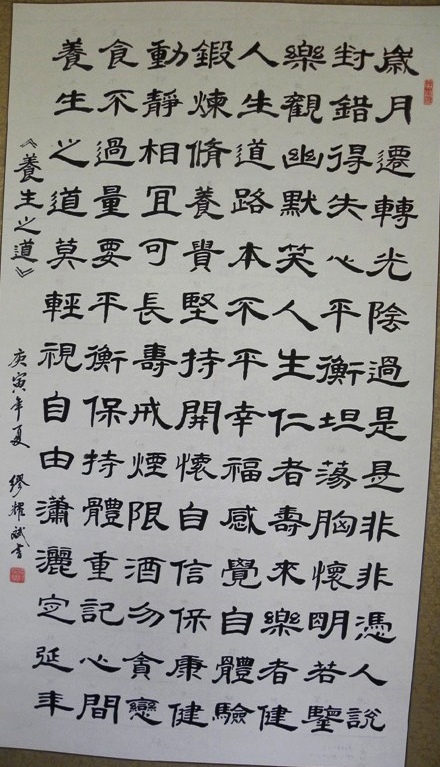 歲月遷轉光陰過是是非非憑人說
對錯得失心平衡坦蕩胸懷明若鑒
樂觀幽默笑人生仁者壽來樂者健
人生道路本不平幸福感覺自體驗
鍛煉脩養貴堅持開懷自信保康健
動靜相宜可長壽戒煙限酒勿貪戀
食不過量要平衡保持體重記心間
養生之道莫輕視自由瀟灑定延年
《養生之道》
庚寅年夏 繆耀斌書